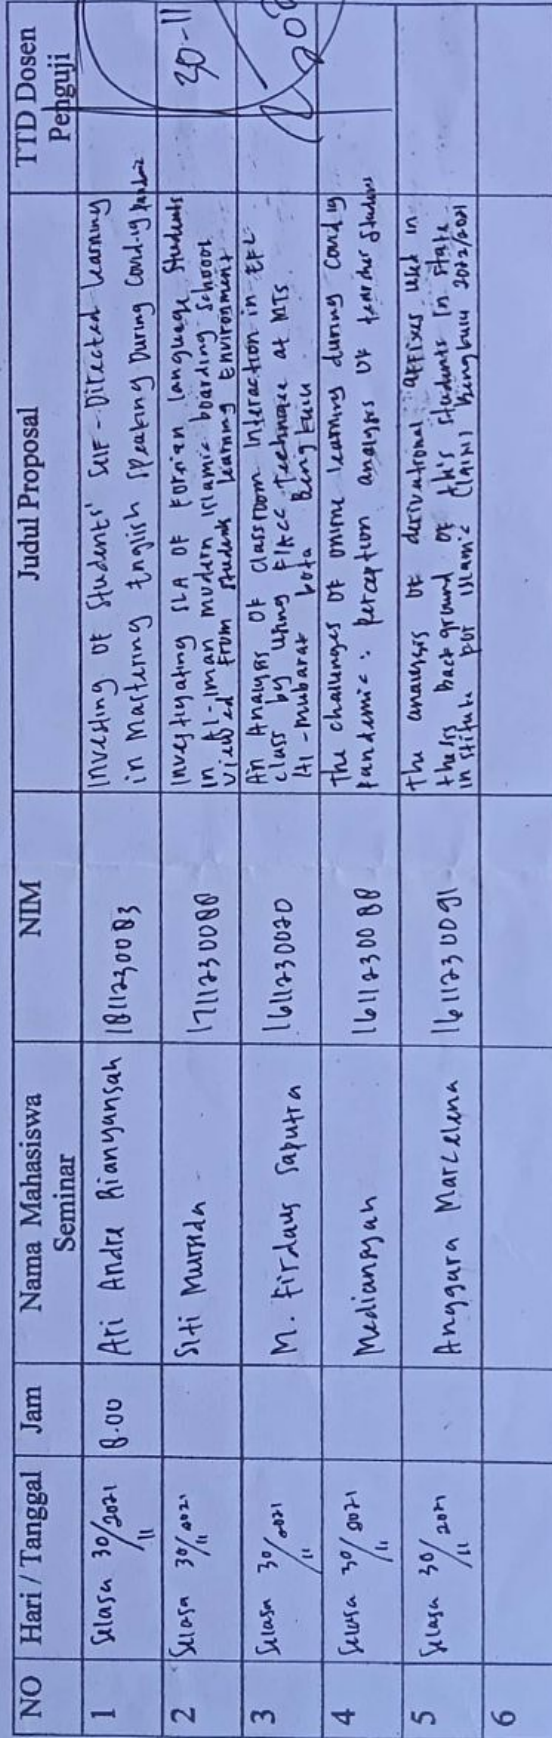 NO Hari / Tanggal Jam Nama Mahasiswa Seminar NIM Judul Proposal TTD Dosen Penguji
1 Selasa 30/11 2021 8.00 Ari Andre Riangansah 1811230083 Investing Of Students' Self-Directed Learning
in Mastering English Speaking During Covid-19 Pandemic
2 Selasa 30/11 2021 Siti Mursida 1711230080 Investigating SLA OF Foreign language Students
in Al-Iman modern Islamic boarding School
viewed from student learning Environment
30-11
3 Selasa 30/11 2021 M. Firdaus Saputra 1611230070 An Analysis Of Classroom Interaction in EFL
class by using FIACC Technique at MTs
Al-Mubarak kota Bengkulu
4 Selasa 30/11 2021 Mediansyah 1611230088 The challenges Of online learning during covid 19
Pandemic: perception analysis OF teacher student
5 Selasa 30/11 2021 Anggara Marcelena 1611230091 The analysis OF derivational affixes used in
thesis background of students in state
institute for Islamic (IAIN) Bengkulu 2022/2021
6